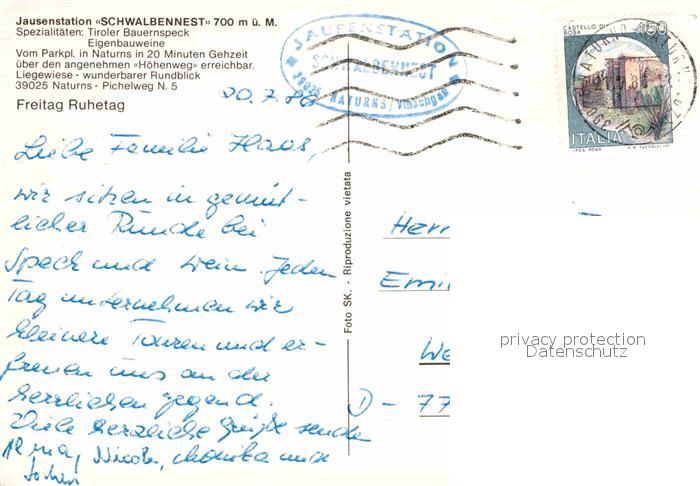 Jausenstation «SCHWALBENNEST» 700 m ü. M.
Spezialitäten: Tiroler Bauernspeck
Eigenbauweine
Vom Parkpl. in Naturns in 20 Minuten Gehzeit
über den angenehmen «Höhenweg» erreichbar.
Liegewiese - wunderbarer Rundblick
39025 Naturns - Pichelweg N. 5
Freitag Ruhetag
JAUSENSTATION
SCHWALBENNEST
39025 NATURNS/Vinschgau
CASTELLO DI
BOSA
450
ITALIA
I.P.Z.S. ROMA
20.7.86
Liebe Familie Haas,
wir sitzen in gemüt-
licher Runde bei
Speck und Wein. Jeden
Tag unternehmen wir
kleinere Touren und er-
freuen uns an der
herrlichen Gegend.
Viele herzliche Grüße senden
Nicole, Monika und
Foto SK. - Riproduzione vietata
Herr
Emi
We
D - 77
privacy protection
Datenschutz